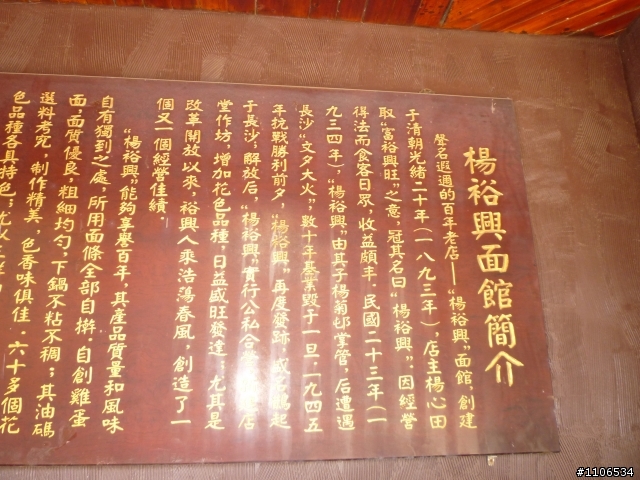 楊裕興面館簡介
聲名遐邇的百年老店——“楊裕興”面館，創建
于清朝光緒二十年（一八九三年），店主楊心田
取“富裕興旺”之意，冠其名曰“楊裕興”。因經營
得法而食客日眾，收益頗丰。民國二十三年（一
九三四年），“楊裕興”由其子楊菊邨掌管，后遭遇
長沙“文夕大火”，數十年基業毀于一旦。一九四五
年抗戰勝利前夕，“楊裕興”再度發跡，
起
于長沙；解放后，“楊裕興”實行公私合
店
堂作坊，增加花色品種，日益盛旺發達；尤其是
改革開放以來，裕興人乘浩蕩春風，創造了一
個又一個經營佳績。
“楊裕興”能夠享譽百年，其產品質量和風味
自有獨到之處，所用面條全部自擀、自創雞蛋
面，面質優良，粗細均勻，下鍋不粘不稠；其油碼
選料考究，制作精美，色香味俱佳：六十多個花
色品種各具特色；尤以
#1106534